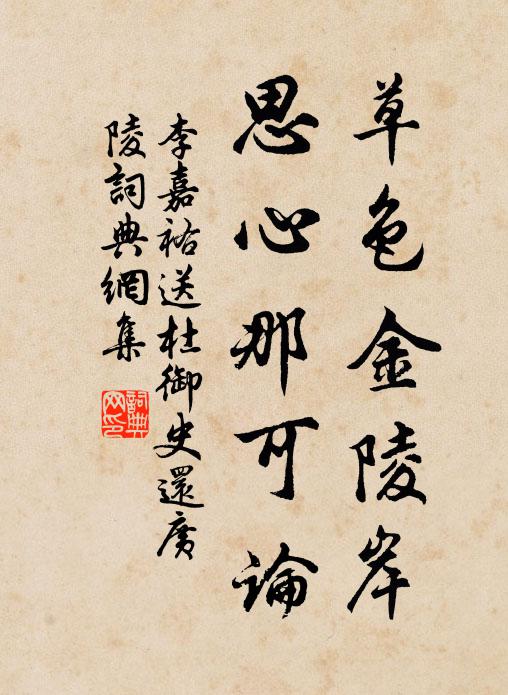 草色金陵岸
思心那可論
李嘉祐送杜御史還廣
陵詞典網集
詞典
网印